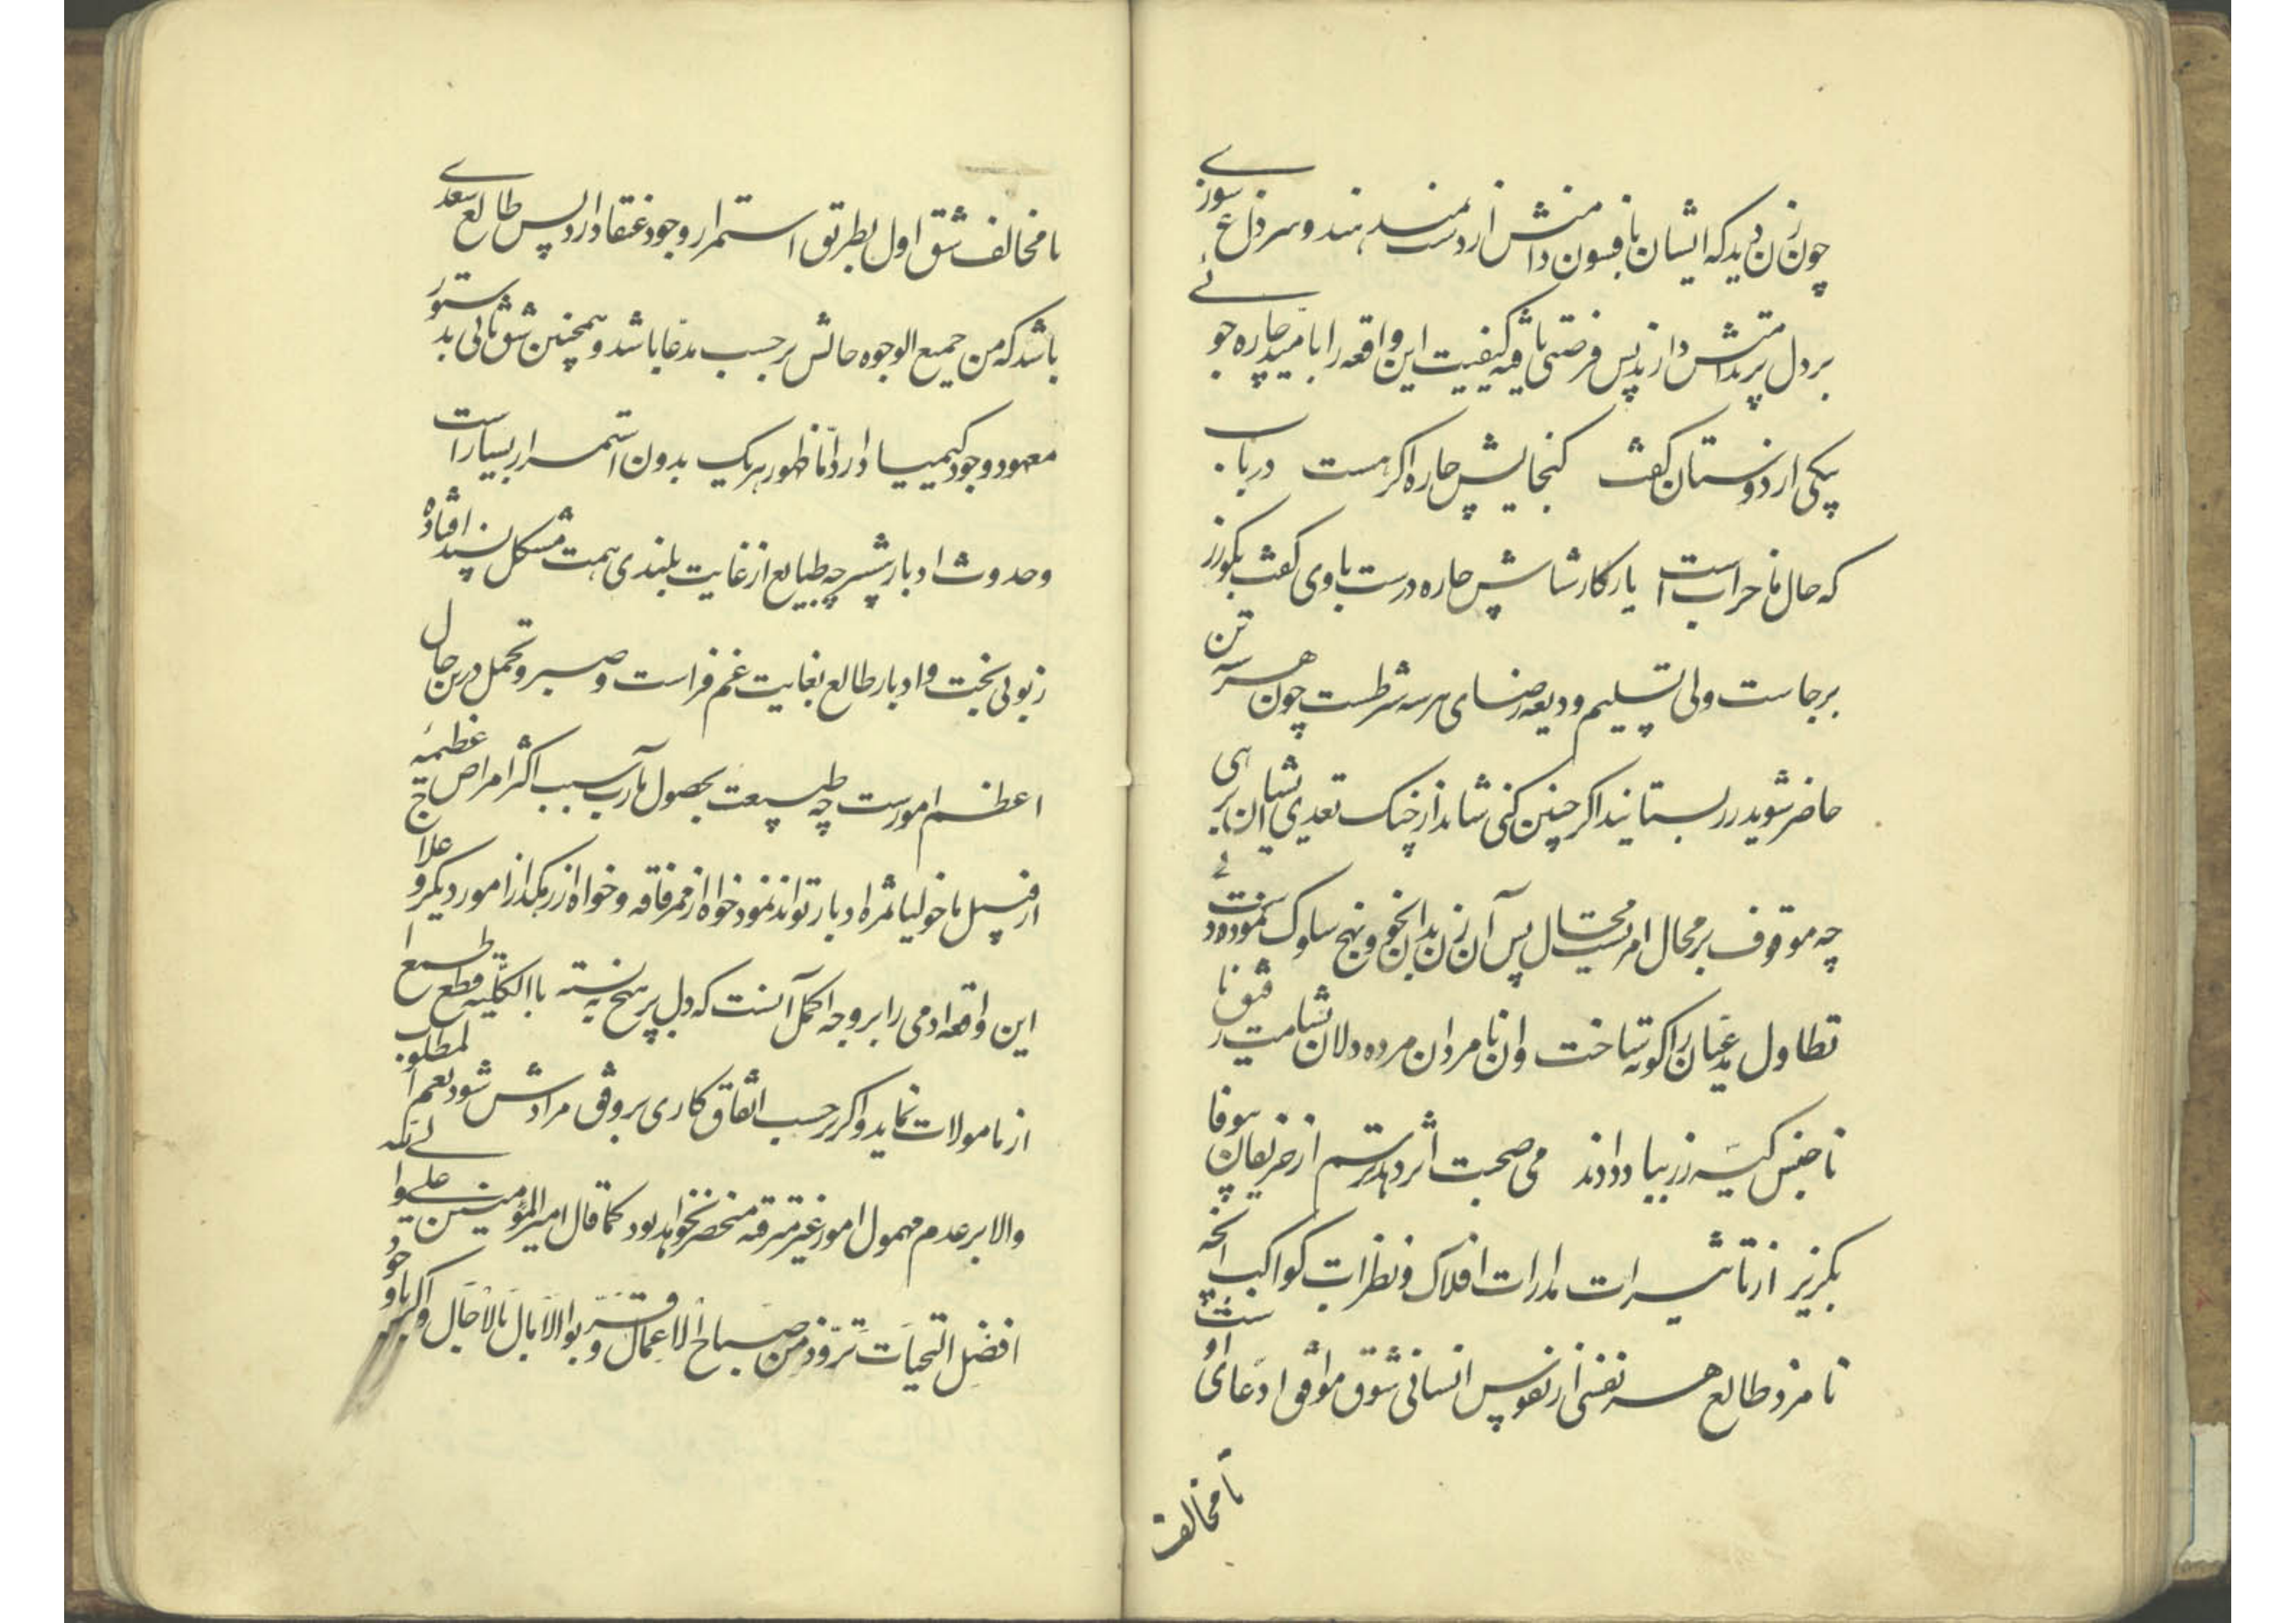 چون زن دید که ایشان بافسون دامنش از دست نمیدهند و سر داغ سوزی
بر دل پر دارند پس فرصتی یافته کیفیت این واقعه را بامید چاره جوئی
بیکی از دوستان گفت کنجایش چاره اکر هست دریاب
که حال ما خرابست یار کار شناس چاره درست باوی گفت بگو زر
برجاست ولی تسلیم ودیعه رضای هر سه شرطست چون هر سه تن
حاضر شوید زر بستانید اکر چنین کنی شاید از چنک تعدی ایشان برهی
چه موقوف بر محال امریست محال پس آن زن بدان نحو و نهج سلوک نموده دست
تطاول مدعیان را کوته ساخت وان نامردان مرده دلان بشامت رفیق نا
ناجنس کیسه زر بباد دادند می صحبت اثر دهد رستم از حریفان بیوفا
بکریز از تاثیرات مدارات افلاک و نظرات کواکب آنچه
نامزد طالع هر نفسی از نفوس انسانی شود موافق ادعای اوست
یا مخالف
یا مخالف شق اول بطریق استمرار وجود عنقا دارد پس طالع سعدی
باشد که من جمیع الوجوه حالش بر حسب مدعا باشد و همچنین شق ثانی بدستور
معهود وجود کیمیا دارد اما ظهور هر یک بدون استمرار بسیار است
وحدوث ادبار بر طبایع از غایت بلندی همت مشکل پسند افتاده
زبونی بخت و ادبار طالع بغایت غم فزاست و صبر و تحمل درین حال
اعظم امورست چه طبیعت بحصول مآرب سبب اکثر امراض عظیمه
از قبیل ماخولیا ثمره ادبار تواند نمود خواه از ممر فاقه و خواه از رهکذر امور دیکر و علاج
این واقعه ادمی را بر وجه اکمل آنست که دل بر هیچ نه بسته باالکلیه قطع طمع
از مامولات نماید و اکر بر حسب اتفاق کاری بر وفق مرادش شود نعم المطلوب
والا بر عدم حصول امور غیر مترقه منحصر نخواهد بود کما قال امیر المؤمنین علی
افضل التحیات تزود من صباح الاعمال و قربوا الآمال بالآجال و اکر با وجود